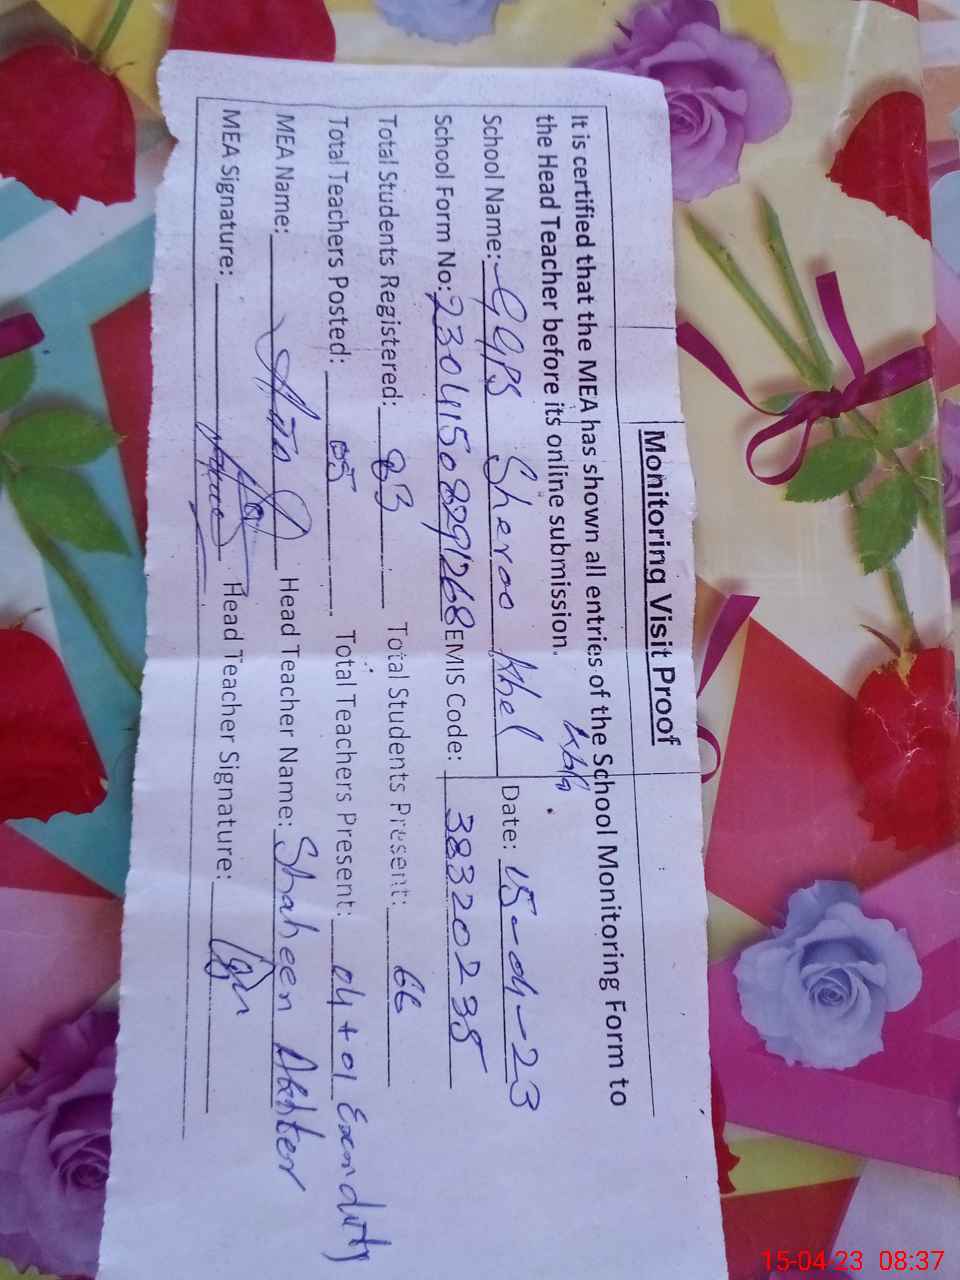 Monitoring Visit Proof
It is certified that the MEA has shown all entries of the School Monitoring Form to
the Head Teacher before its online submission.
School Name: GGPS Sheroo Khel Date: 15-04-23
School Form No: 230415082291268 EMIS Code: 38320235
Total Students Registered: 83 Total Students Present: 66
Total Teachers Posted: 05 Total Teachers Present: 04 + 01 Exam duty
MEA Name: Head Teacher Name: Shaheen Akhter
MEA Signature: Head Teacher Signature:
15-04-23 08:37